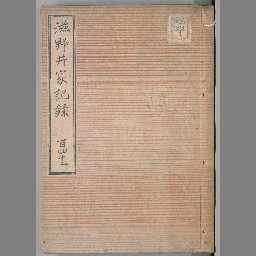 滋野井家記録
百四十二